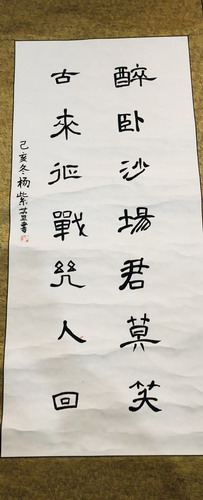 醉卧沙場君莫笑
古來征戰幾人回
己亥冬杨紫芸書